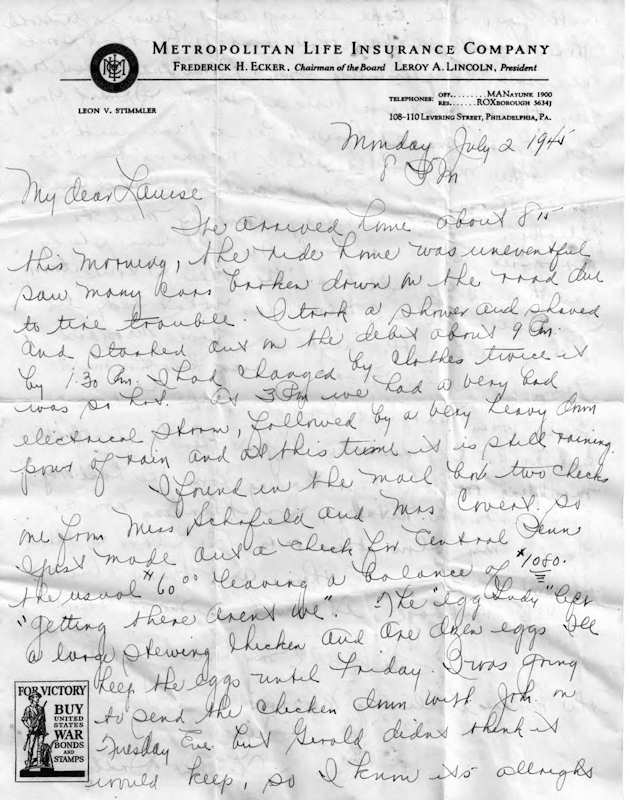 METROPOLITAN LIFE INSURANCE COMPANY
FREDERICK H. ECKER, Chairman of the Board LEROY A. LINCOLN, President
LEON V. STIMMLER
TELEPHONES: OFF.........MANAYUNK 1900
RES.......ROXBOROUGH 3634J
108-110 LEVERING STREET, PHILADELPHIA, PA.
Monday July 2 1945
8 PM
My dear Louise
The arrived home about 8 15
this morning, the ride home was uneventful
saw many cars broken down on the road due
to tire trouble. I took a shower and shaved
and started out on the debit about 9 Am.
by 1:30 Pm. I had changed by clothes twice it
was so hot. At 3 Pm we had a very bad
electrical storm, followed by a very heavy down
pour of rain and at this time it is still raining.
I found in the mail box two checks
one from Miss Schofield and Mrs Covert. so
I just made out a check for Central Penn
the usual $60 00 leaving a balance of $1080.
"getting there aren't we". The "egg Lady" left
a large stewing chicken and one dozen eggs Ill
keep the eggs until Friday. I was going
to send the chicken down with on
Tuesday Eve but Gerald didnt think it
would keep, so I know its allright
FOR VICTORY
BUY
UNITED
STATES
WAR
BONDS
AND
STAMPS